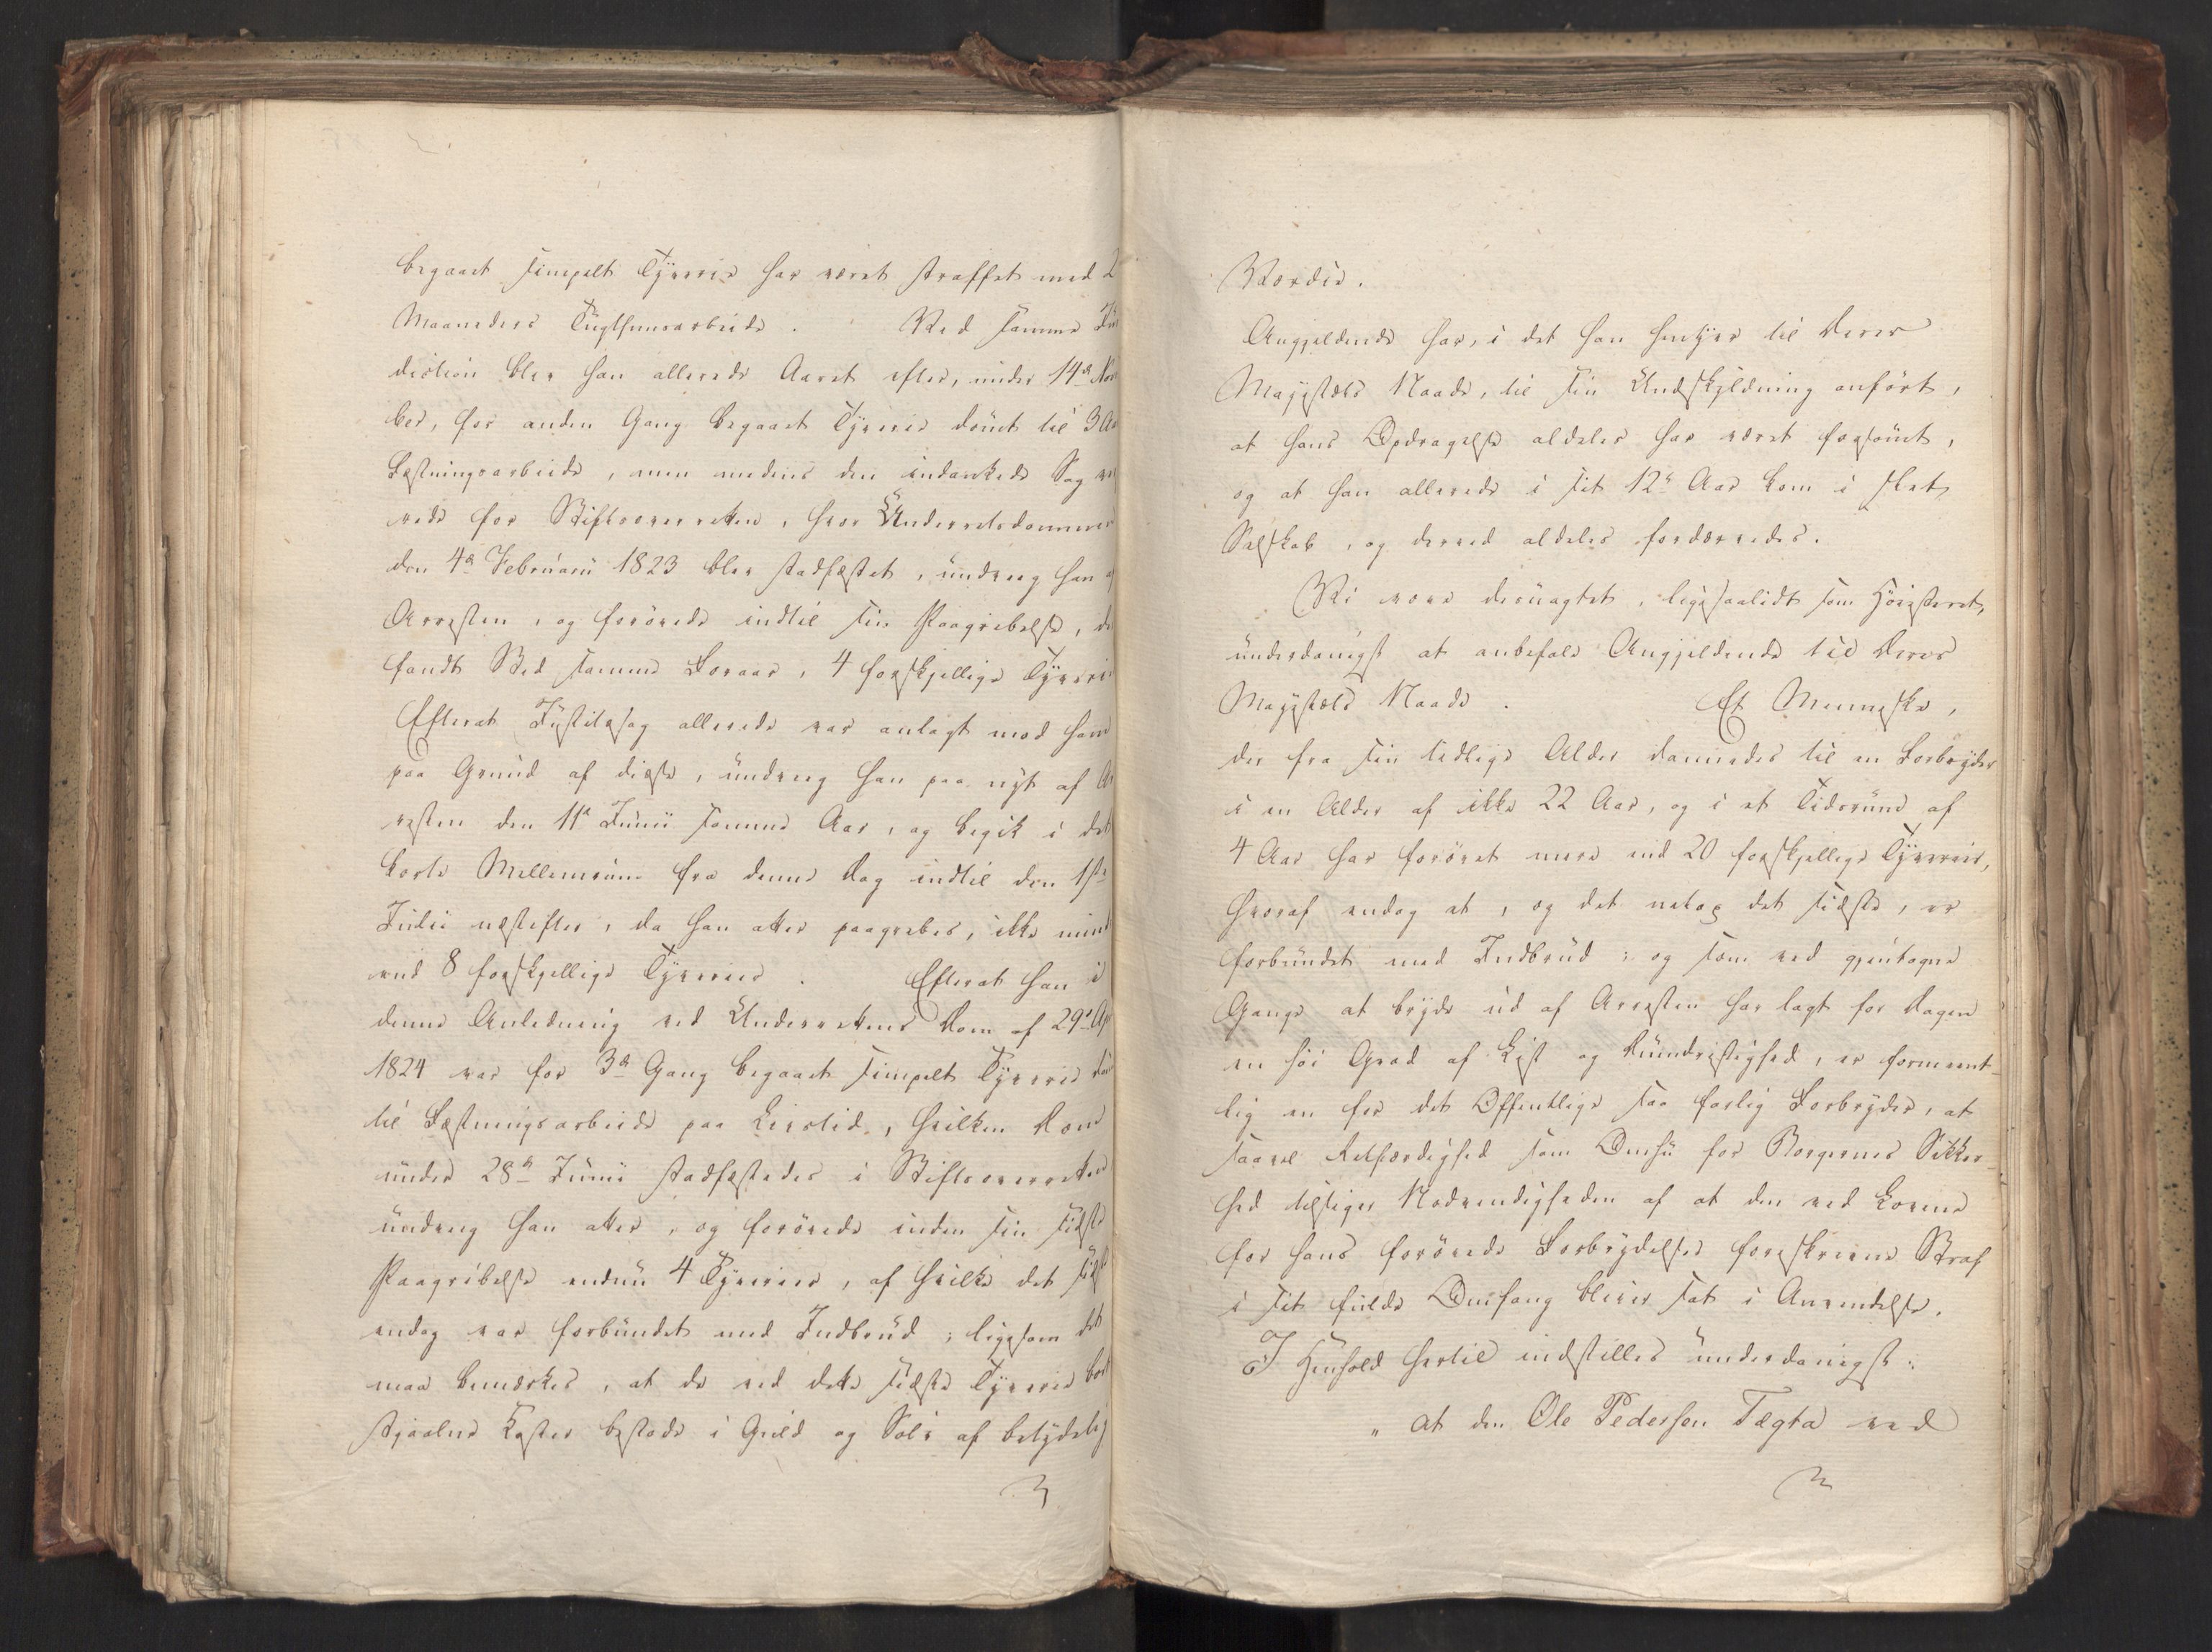 begaaet simpelt Tyverie har været straffet med 2
Maaneders Tugthuusarbeide. Ved samme Ju
diction blev han allerede Aaret efter, under 14de Nov
ber, for anden Gang begaaet Tyverie dömt til 3 Aa
Fæstningsarbeide, men medens den indankede Sag
rede for Stiftsoverretten, hvor Underretsdommen
den 4de Februarii 1823 blev stadfæstet, undveeg han af
Arresten, og forövede indtil sin Paagribelse, der
fandt Sted samme Foraar, 4 forskjellige Tyverie
Efterat Justitssag allerede var anlagt mod ham
paa Grund af disse, undveeg han paa nyt af Ar
resten den 11te Junii samme Aar, og begik i det
korte Mellemrum fra denne Dag indtil den 1ste
Julii næstefter, da han atter paagrebes, ikke mind
end 8 forskjellige Tyverier. Efterat han i
denne Anledning ved Underrettens Dom af 29de Ap
1824 var for 3de Gang begaaet simpelt Tyverie dö
til Fæstningsarbeide paa Livstid, hvilken Dom
under 28de Junii stadfæstedes i Stiftsoverretten
undveeg han atter, og forövede inden sin sidste
Paagribelse endnu 4 Tyverier, af hvilke det sidst
endog var forbundet med Indbrud; ligesom det
maa bemærkes, at de ved dette sidste Tyverie bort
stjaalne Koster bestode i Guld og Sölv af betydelig
Værdie.
Angjeldende har, i det han henflyer til Deres
Majestæts Naade, til sin Undskyldning anfört,
at hans Opdragelse aldeles har været forsömt,
og at han allerede i sit 12te Aar kom i slet
Selskab, og derved aldeles fordærvedes.
Vi vove desuagtet, ligesaalidt som Höiesteret,
underdanigst at anbefale Angjeldende til Deres
Majestæts Naade. Et Menneske,
der fra sin tidlige Alder dannedes til en Forbryder
i en Alder af ikke 22 Aar, og i et Tidsrum af
4 Aar har forövet mere end 20 forskjellige Tyverier,
hvoraf endog et, og det netop det sidste, er
forbundet med Indbrud; og som ved gjentagne
Gange at bryde ud af Arresten har lagt for Dagen
en höi Grad af List og Dumdristighed, er formeent-
lig en for det Offentlige saa farlig Forbryder, at
saavel Retfærdighed som Omhu for Borgernes Sikker-
hed tilsiger Nödvendigheden af at den ved Lovene
for hans forövede Forbrydelser foreskrevne Straf
i sit fulde Omfang bliver sat i Anvendelse.
I Henhold hertil indstilles underdanigst:
„ at den Ole Pedersen Tægta ved